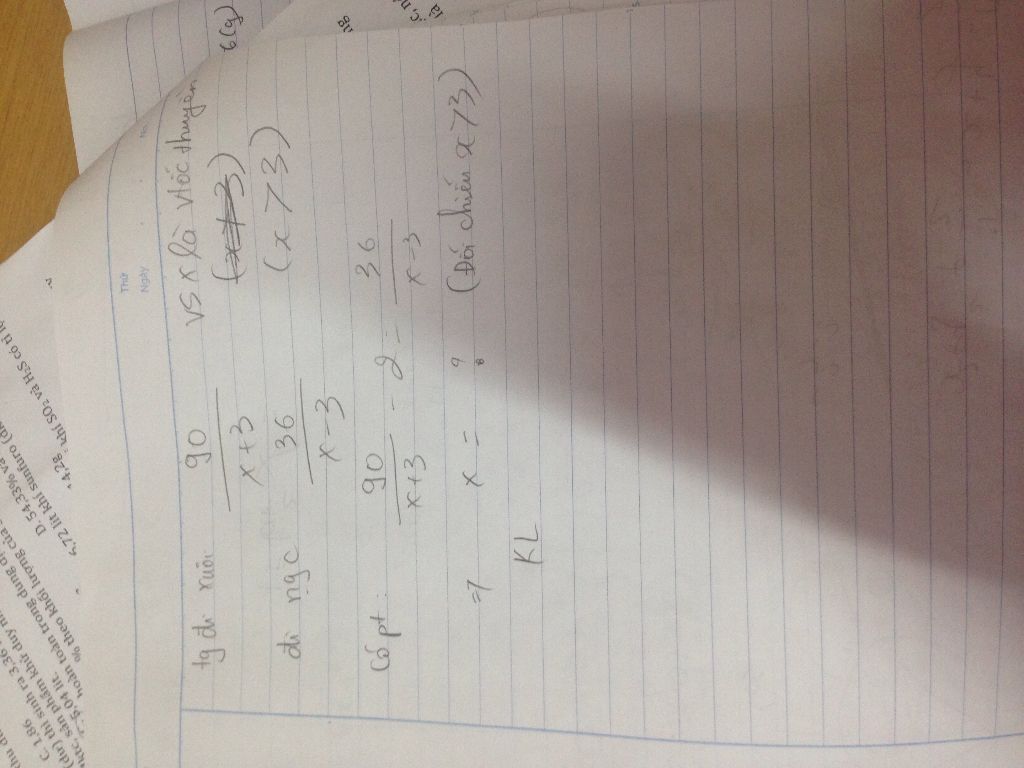 Thứ
Ngày
No.
tg đi xuôi 90/x+3 vs x là vtốc thuyền
(x > 3)
đi ngc 36/x-3 (x > 3)
Có pt: 90/x+3 - 2 = 36/x-3
=> x = ? (Đối chiếu x > 3)
KL
6(g)
C. 1,86
(dư) thì sinh ra 3,36
sản phẩm khử duy n
5,04 lít.
hoàn toàn trong dung d
% theo khối lượng của
D. 54,33% và
6,72 lít khí sunfurơ (đk
khí SO2 và H2S có tỉ lệ